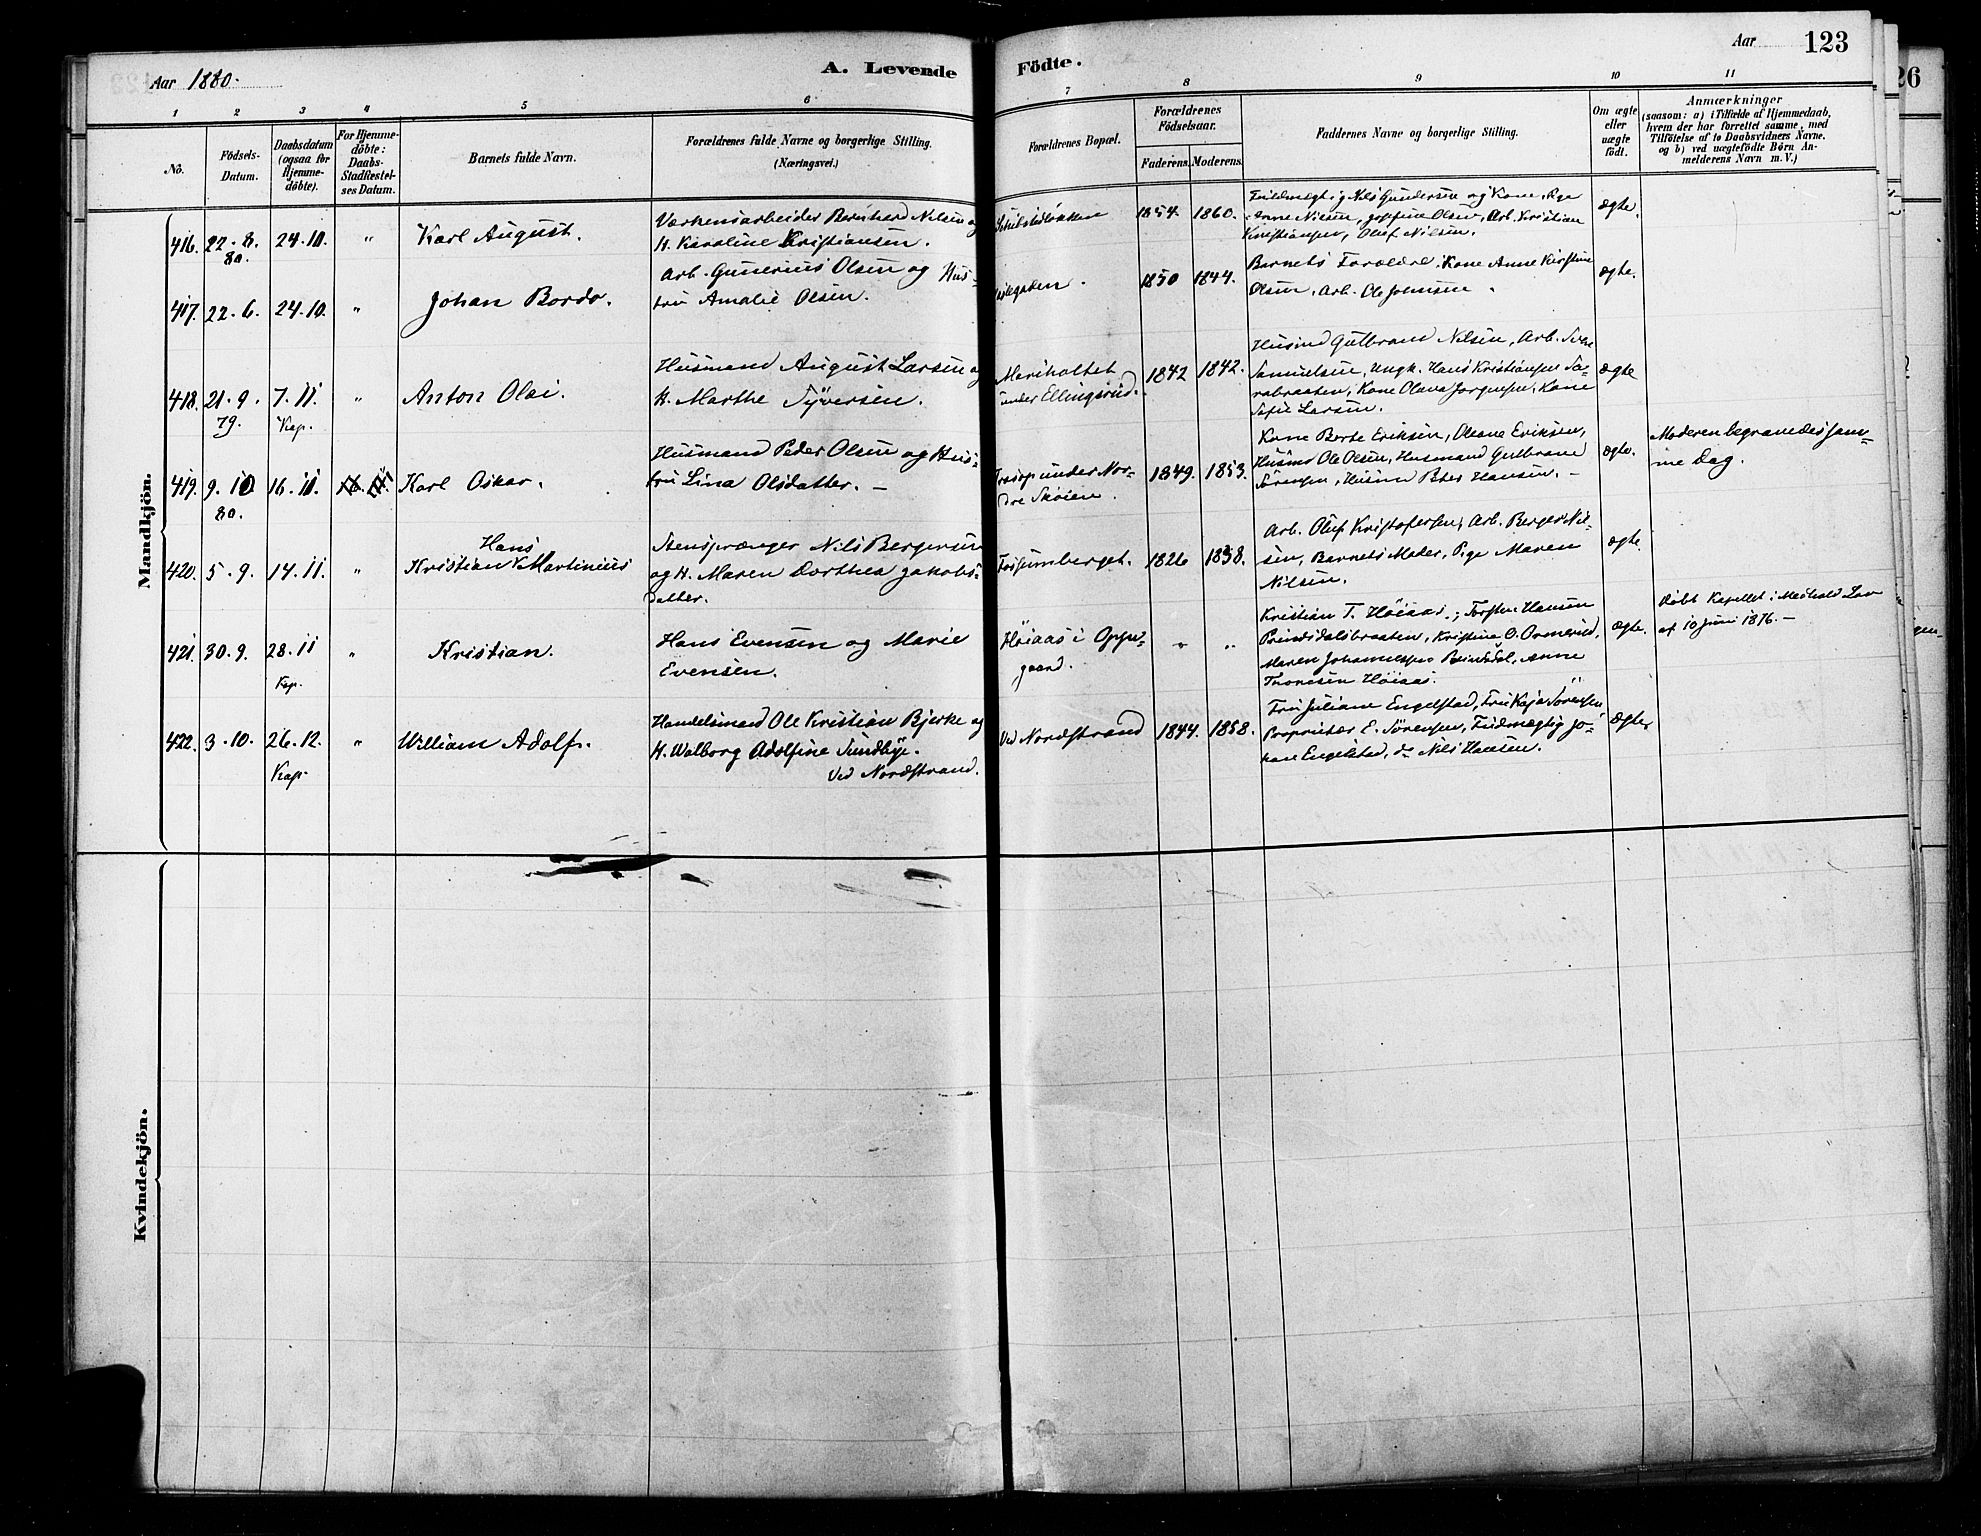 Aar 1880.
A. Levende Födte.
Aar 123
26
1 2 3 4 5 6 7 8 9 10 11
No.
Födsels-
Datum.
Daabsdatum
(ogsaa for
Hjemme-
döbte).
For Hjemme-
döbte:
Daabs-
Stadfæstel-
ses Datum.
Barnets fulde Navn.
Forældrenes fulde Navne og borgerlige Stilling.
(Næringsvei.)
Forældrenes Bopæl.
Forældrenes
Födselsaar.
Faderens. Moderens.
Faddernes Navne og borgerlige Stilling.
Om ægte
eller
uægte
födt.
Anmærkninger
(saasom: a) i Tilfælde af Hjemmedaab,
hvem der har forrettet samme, med
Tilföielse af to Daabsvidners Navne.
og b) ved uægtefödte Börn An-
melderens Navn m. V.)
Mandkjön.
416. 22. 8. 80. 24. 10. " Karl August.
Værkensarbeider Bernhard Nilsen og
H. Karoline Kristiansen.
1854. 1860.
Fuldmægtig Nils Gundersen og Kone, Pige
Anne Nilsen, Josefine Olsen, Arb. Kristian
Kristiansen, Oluf Nilsen.
ægte.
417. 22. 6. 24. 10. " Johan Bordo.
Arb. Gunerius Olsen og Hus-
tru Amalie Olsen.
1850 1844.
Barnets Forældre, Kone Anne Kirstine
Olsen, Arb. Ole Johnsen.
ægte.
418. 21. 9. 79. 7. 11. Kap. " Anton Olai.
Husmand August Larsen og
H. Marthe Syversen.
Mariholtet
under Ellingsrud.
1842 1842.
Husmd Gulbrand Nilsen, Arb.
Samuelsen, Ungk. Hans Kristiansen Sa-
rabraaten, Kone Olava Jørgensen, Kone
Sofie Larsen.
ægte
419. 9. 10 80. 16. 11. Karl Oskar.
Husmand Peder Olsen og Hus-
tru Lina Olsdatter. —
Trasop under Nor-
dre Skøien.
1849. 1853.
Kone Berte Eriksen, Oleane Eriksen,
Husmd Ole Olsen, Husmand Gulbrand
Sørensen, Husmd Hansen. —
ægte.
Moderen begravedes sam-
me Dag.
420. 5. 9. 14. 11. " Kristian Hans Martinius
Stensprænger Nils Bergersen
og H. Maren Dorthea Jakobs-
datter.
Fossumberget.
1826 1838.
Arb. Oluf Kristofersen, Arb. Berger Nil-
sen, Barnets Moder, Pige Maren
Nilsen.
ægte.
421. 30. 9. 28. 11 Kap. " Kristian.
Hans Evensen og Marie
Evensen.
Høiaas i Oppe-
gaard.
" "
Kristian T. Høiaas, Torsten Hansen
Prinsdalsbraaten, Kristine O. Ormerud,
Maren Johannesson Prinsdal, Anne
Thoresen Høiaas.
ægte.
Døbt Kapellet i Medhold Lov
af 10 Juni 1876. —
422. 3. 10. 26. 12. Kap. " William Adolf.
Handelsmand Ole Kristian Bjerke og
H. Walborg Adolfine Sundbye.
Ved Nordstrand.
Ved Nordstrand
1844. 1858.
Fru Juliane Engelstad, Fru Kaja Sørensen
Proprietær E. Sørensen, Fuldmægtig Jo-
han Engelstad, do Nils Hansen.
ægte.
Kvindekjön.